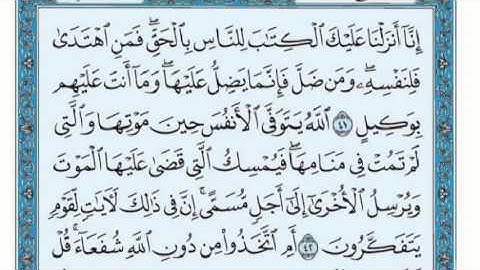 إِنَّا أَنزَلْنَا عَلَيْكَ ٱلْكِتَٰبَ لِلنَّاسِ بِٱلْحَقِّۖ فَمَنِ ٱهْتَدَىٰ
فَلِنَفْسِهِۦۖ وَمَن ضَلَّ فَإِنَّمَا يَضِلُّ عَلَيْهَاۖ وَمَآ أَنتَ عَلَيْهِم
بِوَكِيلٍ ٤١ ٱللَّهُ يَتَوَفَّى ٱلْأَنفُسَ حِينَ مَوْتِهَا وَٱلَّتِي
لَمْ تَمُتْ فِي مَنَامِهَاۖ فَيُمْسِكُ ٱلَّتِي قَضَىٰ عَلَيْهَا ٱلْمَوْتَ
وَيُرْسِلُ ٱلْأُخْرَىٰٓ إِلَىٰٓ أَجَلٍ مُّسَمًّىۚ إِنَّ فِي ذَٰلِكَ لَءَايَٰتٍ لِّقَوْمٍ
يَتَفَكَّرُونَ ٤٢ أَمِ ٱتَّخَذُوا۟ مِن دُونِ ٱللَّهِ شُفَعَآءَۚ قُلْ